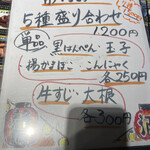 5種盛り合わせ
1200円
単品
黒はんぺん・玉子
・揚かまぼこ・こんにゃく
各250円
牛すじ・大根
各300円